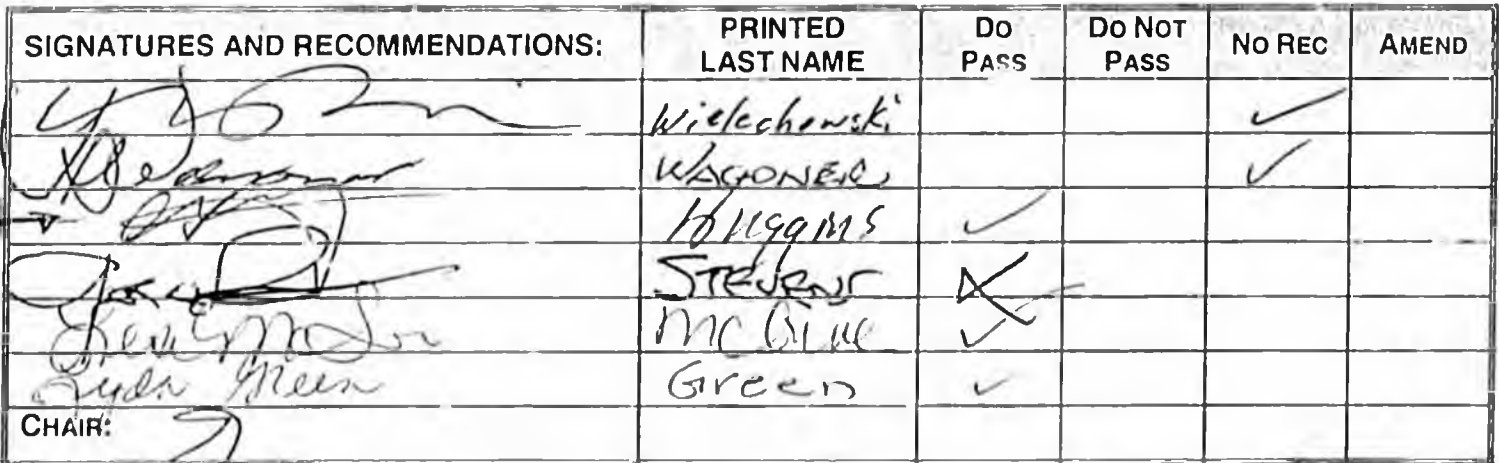 SIGNATURES AND RECOMMENDATIONS: PRINTED LAST NAME DO PASS DO NOT PASS NO REC AMEND
Wielechowski ✓
WAGONER ✓
Huggins ✓
STEVENS X
McGuire ✓
Lyda Green Green ✓
CHAIR: